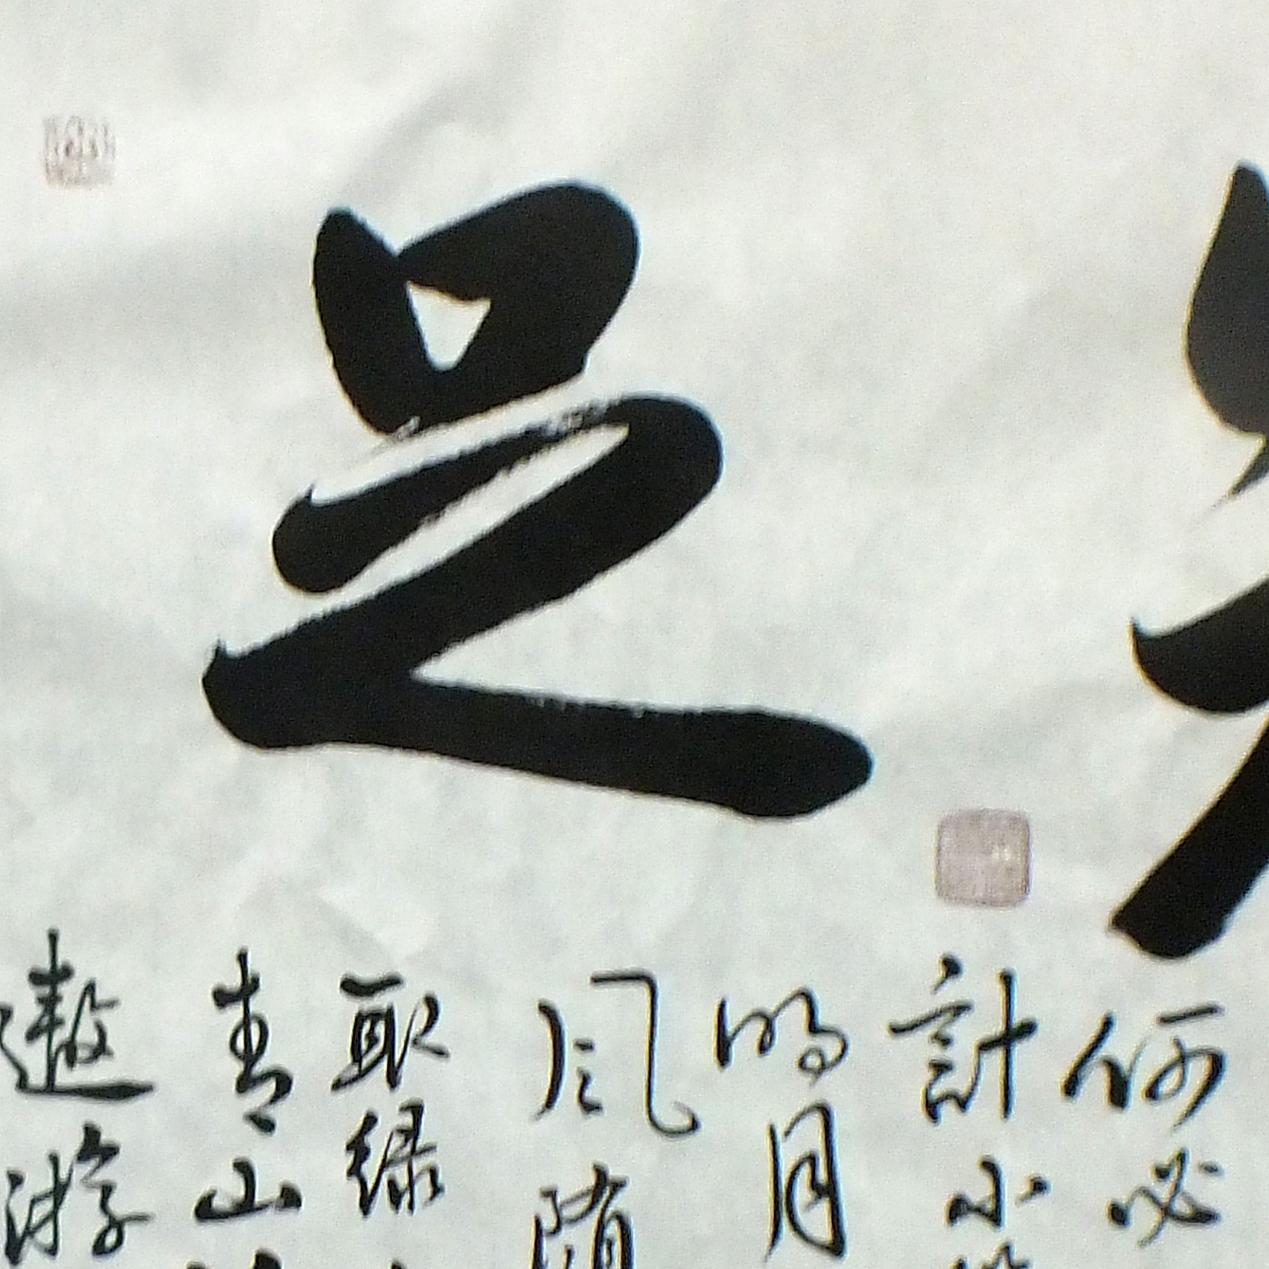 足
何必
計小
明月
风随
取绿
青山
遨游